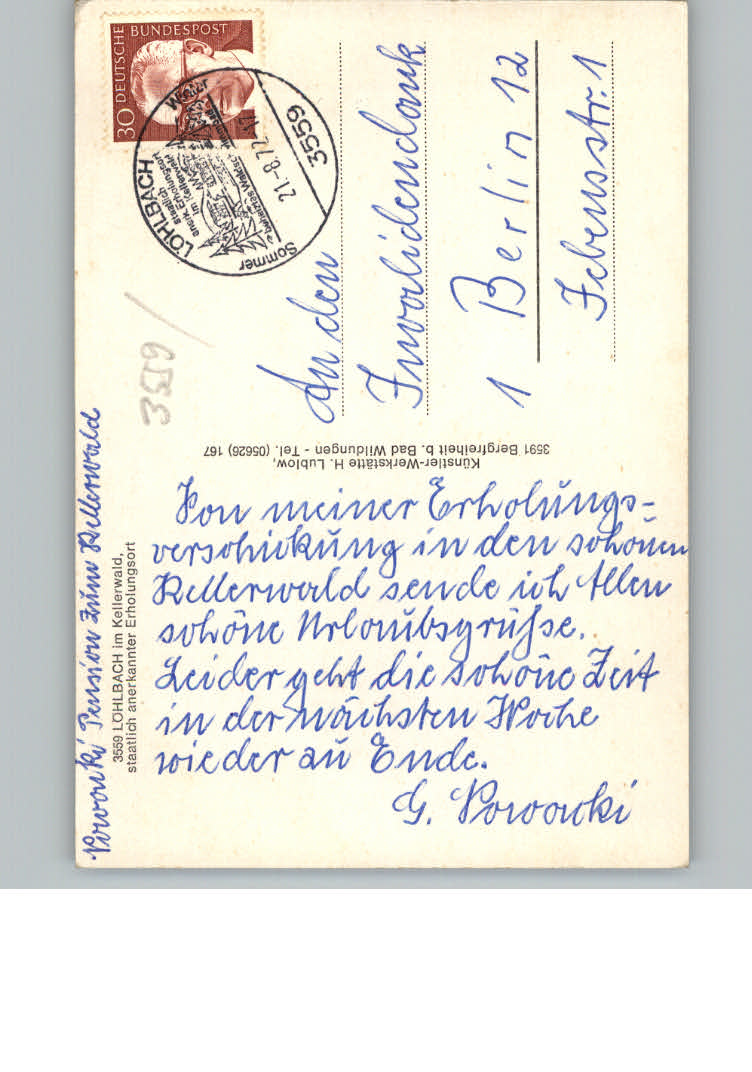 30 DEUTSCHE BUNDESPOST
3559 LÖHLBACH
21.-8.72.-17
Sommer
Winter
staatlich
anerk. Erholungsort
im Kellerwald
beheiztes
3559
An den
Invalidendank
1 Berlin 12
Jebensstr. 1
Künstler-Werkstätte H. Lublow,
3591 Bergfreiheit b. Bad Wildungen - Tel. (05626) 167
Pension zum Kellerwald
3559 LÖHLBACH im Kellerwald,
staatlich anerkannter Erholungsort
Von meiner Erholungs=
verschickung in den schönen
Kellerwald sende ich Allen
schöne Urlaubsgrüsse.
Leider geht die schöne Zeit
in der nächsten Woche
wieder zu Ende.
G.